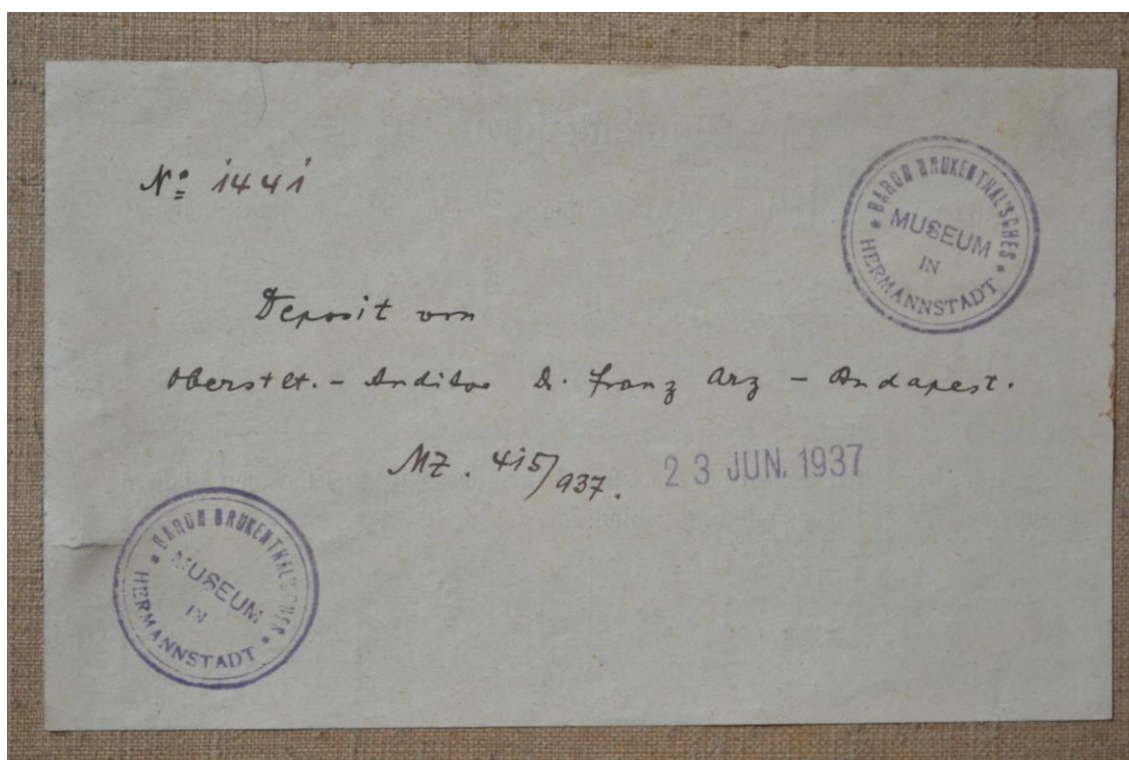 Nº 1441
BARON BRUKENTHAL'SCHES
MUSEUM
IN
HERMANNSTADT
Deposit von
Oberstlt. - Auditor Dr. Franz Arz - Budapest.
MZ. 415/937. 23 JUN. 1937
BARON BRUKENTHAL'SCHES
MUSEUM
IN
HERMANNSTADT